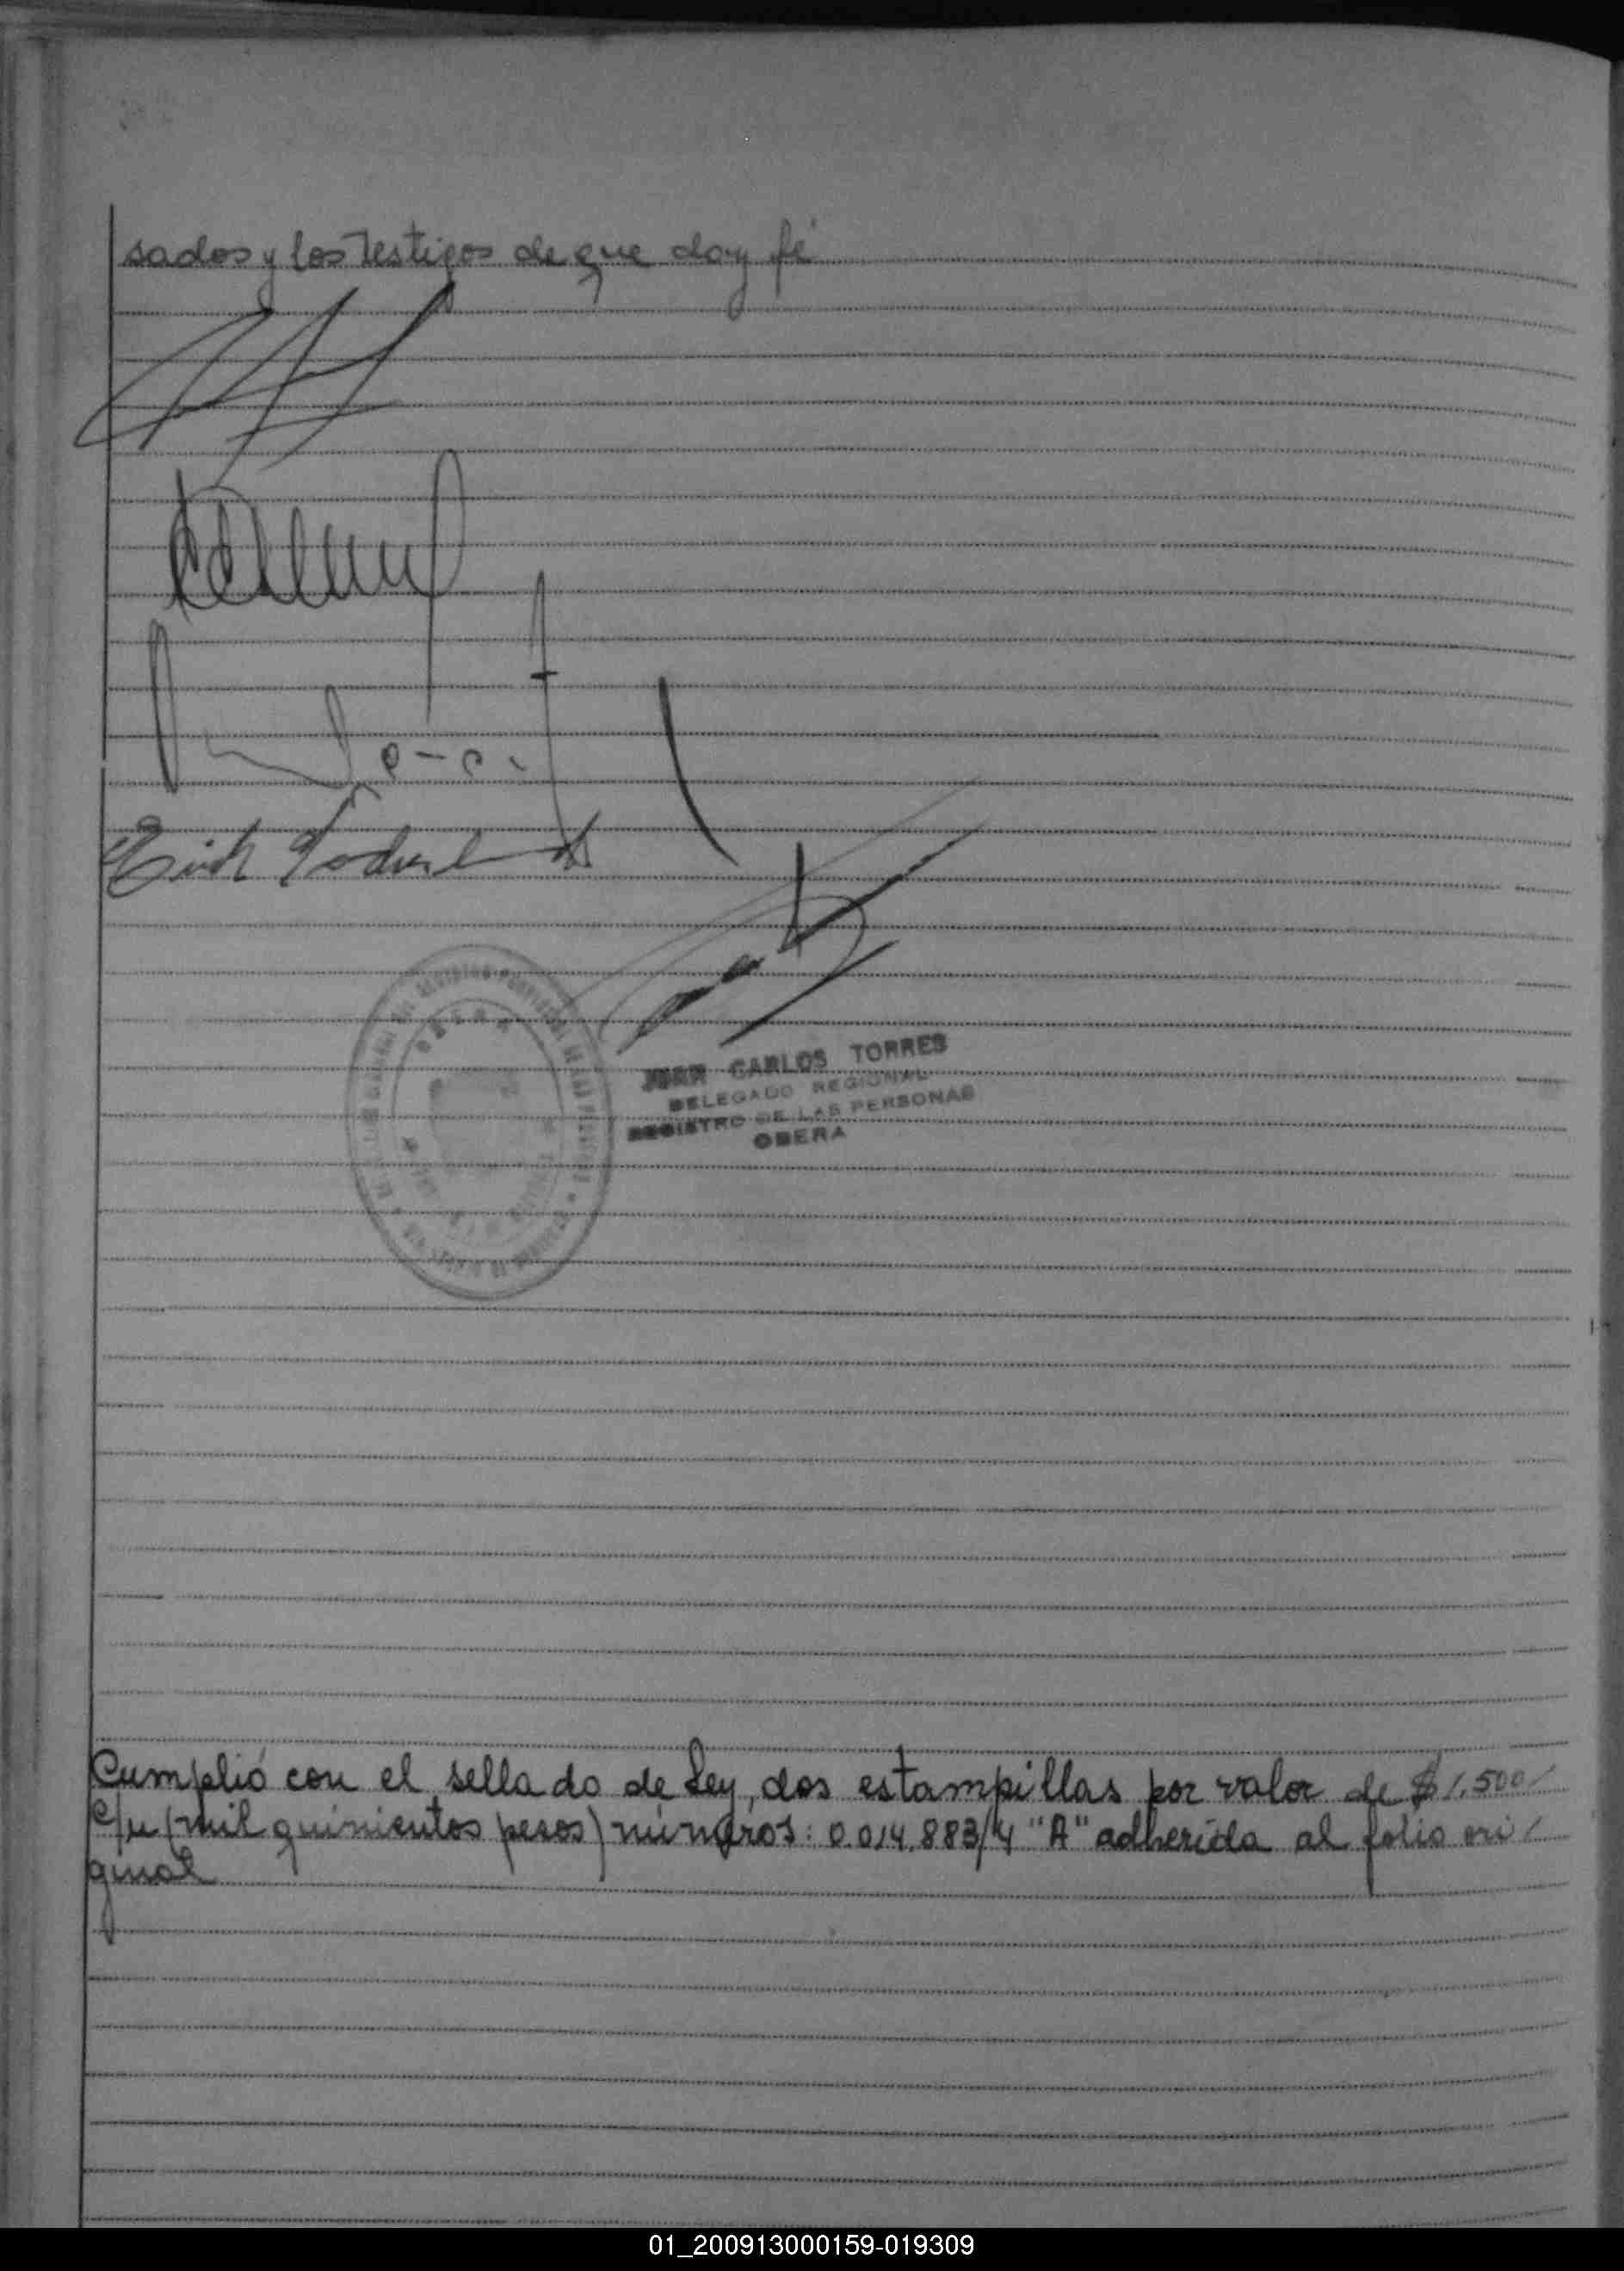 sados y los Testigos de que doy fé
Erich
JUAN CARLOS TORRES
DELEGADO REGIONAL
REGISTRO DE LAS PERSONAS
OBERA
Cumplió con el sellado de Ley, dos estampillas por valor de $ 1.500/
c/u (mil quinientos pesos) números: 0.014.883/4 "A" adherida al folio ori/
ginal
01_200913000159-019309